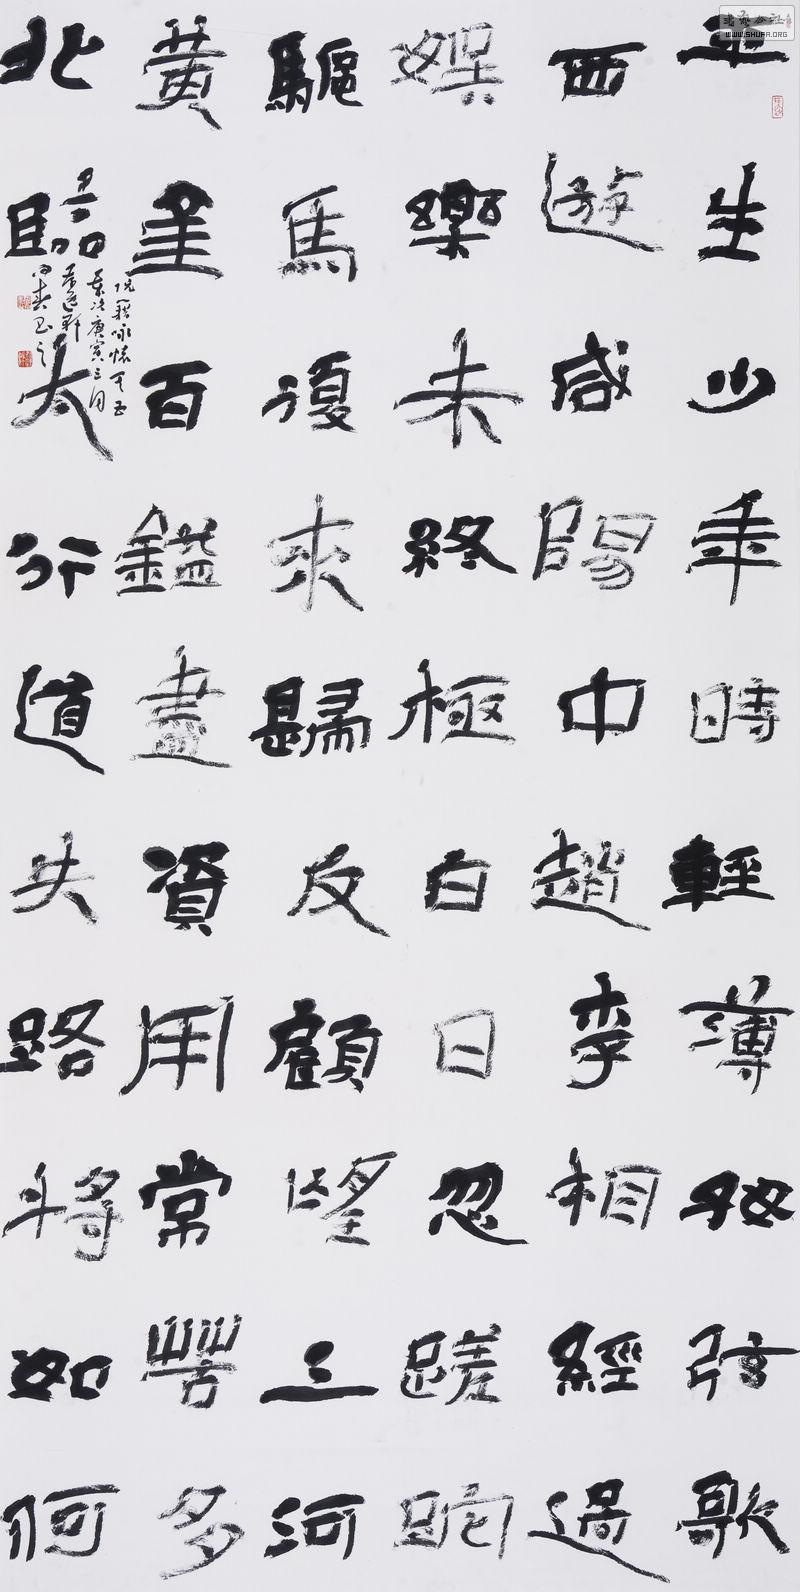 平生少年時輕薄好弦歌
西遊咸陽中趙李相經過
娛樂未終極白日忽蹉跎
驅馬復來歸反顧望三河
黃金百鎰盡資用常苦多
北臨太行道失路將如何
阮籍咏懷其五
歲次庚寅三月
書法公社
WWW.SHUFA.ORG